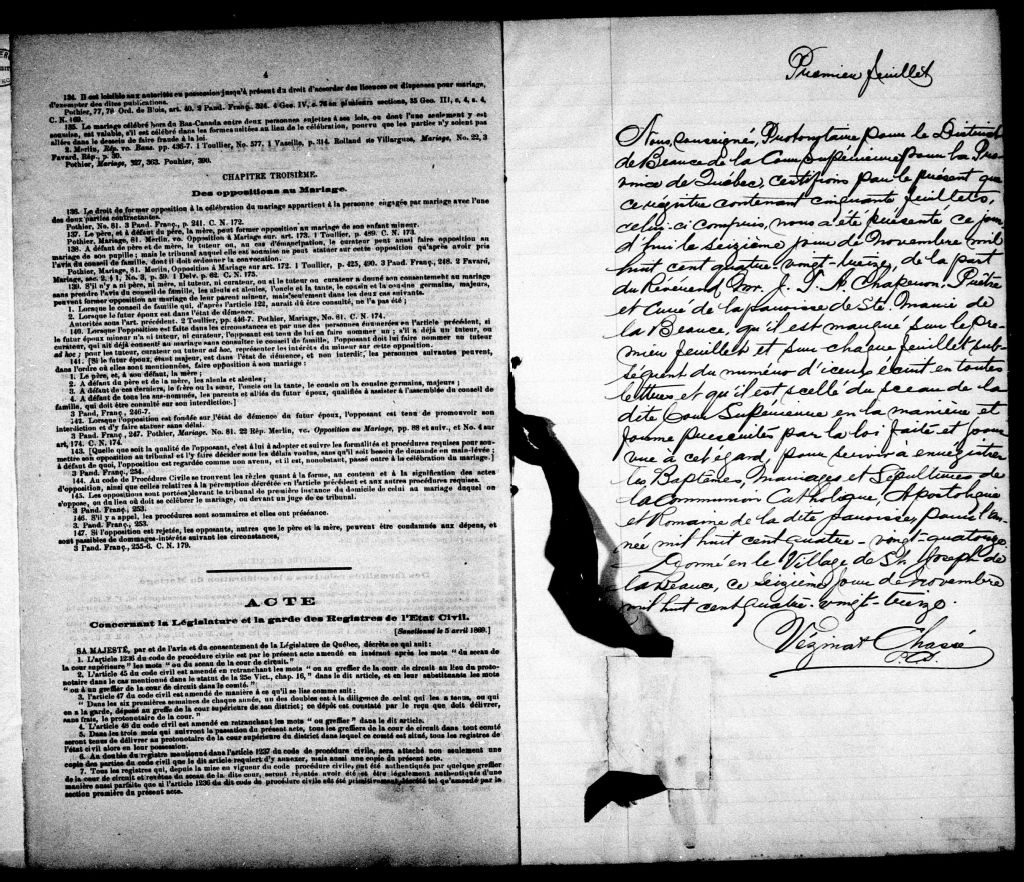 4
134. Il est loisible aux autorités en possession jusqu'à présent du droit d'accorder des licences ou dispenses pour mariage,
d'exempter des dites publications.
Pothier, 77, 79 Ord. de Blois, art. 40. 2 Pand. Franç., 324. 4 Geo. IV, c. 76 en plusieurs sections, 35 Geo. III, c, 4, s. 4,
C. N. 169.
135. Le mariage célébré hors du Bas-Canada entre deux personnes sujettes à ses lois, ou dont l'une seulement y est
soumise, est valable, s'il est célébré dans les formes usitées au lieu de la célébration, pourvu que les parties n'y soient pas
allées dans le dessein de faire fraude à la loi.
2 Merlin, Rép. vo. Bans. pp. 436-7. 1 Toullier, No. 577, 1 Vazeille, p. 314. Rolland de Villargues, Mariage, No. 22, 3
Favard, Rép., p. 30.
Pothier, Mariage, 327, 363. Pouhier, 390.
CHAPITRE TROISIÈME.
Des oppositions au Mariage.
136. Le droit de former opposition à la célébration du mariage appartient à la personne engagée par mariage avec l'une
des deux parties contractantes.
Pothier, No. 81. 3 Pand. Franç., p. 241. C. N. 172.
137. Le père, et à défaut de père, la mère, peut former opposition au mariage de son enfant mineur.
Pothier, Mariage, 81. Merlin, vo. Opposition à Mariage sur. art. 173. 1 Toullier, p. 489. C. N. 173.
138. A défaut de père et de mère, le tuteur ou, au cas d'émancipation, le curateur peut aussi faire opposition au
mariage de son pupille; mais le tribunal auquel elle est soumise ne peut statuer sur cette opposition qu'après avoir pris
l'avis du conseil de famille, dont il doit ordonner la convocation.
Pothier, Mariage, 81. Merlin, Opposition à Mariage sur art. 172. 1 Toullier, p. 425, 490. 3 Pand. Franç., 248. 2 Favard,
Mariage, sec. 2. § 1, No. 3, p. 59. 1 Delv. p. 62. C. N. 175.
139. S'il n'y a ni père, ni mère, ni tuteur, ni curateur, ou si le tuteur ou curateur a donné son consentement au mariage
sans prendre l'avis du conseil de famille, les aïeuls et aïeules, l'oncle et la tante, le cousin et la cousine germains, majeurs,
peuvent former opposition au mariage de leur parent mineur, mais seulement dans les deux cas suivants.
1. Lorsque le conseil de famille qui, d'après l'article 122, aurait dû être consulté, ne l'a pas été;
2. Lorsque le futur époux est dans l'état de démence.
Autorités sous l'art. précédent. 2 Toullier, pp. 446-7. Pothier, Mariage, No. 81. C. N. 174.
140. Lorsque l'opposition est faite dans les circonstances et par une des personnes énumérées en l'article précédent, si
le futur époux mineur n'a ni tuteur, ni curateur, l'opposant est tenu de lui en faire nommer un; s'il a déjà un tuteur, ou
curateur, qui ait déjà consenti au mariage sans consulter le conseil de famille, l'opposant doit lui faire nommer un tuteur
ad hoc; pour les tuteur, curateur ou tuteur ad hoc, représenter les intérêts du mineur sur cette opposition.
141. [Si le futur époux, étant majeur, est dans l'état de démence, et non interdit, les personnes suivantes peuvent,
dans l'ordre où elles sont mentionnées, faire opposition à son mariage:
1. Le père, et, à son défaut, la mère;
2. A défaut du père et de la mère, les aïeuls et aïeules;
3. A défaut de ces derniers, le frère ou la sœur, l'oncle ou la tante, le cousin ou la cousine germains, majeurs;
4. A défaut de tous les sus-nommés, les parents et alliés du futur époux, qualifiés à assister à l'assemblée du conseil de
famille, qui doit être consulté sur son interdiction.]
3 Pand. Franç., 246-7.
142. Lorsque l'opposition est fondée sur l'état de démence du futur époux, l'opposant est tenu de promouvoir son
interdiction et d'y faire statuer sans délai.
3 Pand. Franç., 247. Pothier, Mariage, No. 81. 22 Rép. Merlin, vo. Opposition au Mariage, pp. 88 et suiv., et No. 4 sur
art. 174. C. N. 174.
143. [Quelle que soit la qualité de l'opposant, c'est à lui à adopter et suivre les formalités et procédures requises pour sou-
mettre son opposition au tribunal et l'y faire décider sous les délais voulus, sans qu'il soit besoin de demande en main-levée;
à défaut de quoi, l'opposition est regardée comme non avenu, et il est, nonobstant, passé outre à la célébration du mariage.]
3 Pand. Franç., 254.
144. Au code de Procédure Civile se trouvent les règles quant à la forme, au contenu et à la signification des actes
d'opposition, ainsi que celles relatives à la péremption décrétée en l'article précédent et aux autres procédures requises.
145. Les oppositions sont portées devant le tribunal de première instance du domicile de celui au mariage duquel on
s'oppose, ou du lieu où doit se célébrer le mariage, ou devant un juge de ce tribunal.
3 Pand. Franç., 253.
146. S'il y a appel, les procédures sont sommaires et elles ont préséance.
3. Pand. Franç., 253.
147. Si l'opposition est rejetée, les opposants, autres que le père et la mère, peuvent être condamnés aux dépens, et
sont passibles de dommages-intérêts suivant les circonstances,
3 Pand. Franç., 255-6. C. N. 179.
ACTE
Concernant la Législature et la garde des Registres de l'Etat Civil.
[Sanctionné le 5 avril 1869.]
SA MAJESTÉ, par et de l'avis et du consentement de la Législature de Québec, décrète ce qui suit:
1. L'article 1236 du code de procédure civile est par le présent acte amendé en insérant après les mots " du sceau de
la cour supérieure " les mots " ou du sceau de la cour de circuit."
2. L'article 45 du code civil est amendé en retranchant les mots " ou au greffier de la cour de circuit au lieu du proto-
notaire dans le cas mentionné dans le statut de la 25e Vict., chap. 16," dans le dit article, et en leur substituants les mots
" ou à un greffier de la cour de circuit dans le comté."
3. l'article 47 du code civil est amendé de manière à ce qu'il se lise comme suit:
" Dans les six premières semaines de chaque année, un des doubles est à la diligence de celui qui les a tenus, ou qui
en a la garde, déposé au greffe de la cour supérieure de son district; ce dépôt est constaté par le reçu que doit délivrer,
sans frais, le protonotaire de la cour."
4. L'article 48 du code civil est amendé en retranchant les mots " ou greffier " dans le dit article.
5. Dans les trois mois qui suivront la passation du présent acte, tous les greffiers de la cour de circuit dans tout comté
seront tenus de délivrer au protonotaire de la cour supérieure du district dans lequel ce comté est situé, tous les registres de
l'état civil alors en leur possession.
6. Au double du registre mentionné dans l'article 1237 du code de procédure civile, sera attaché non seulement une
copie des parties du code civil que le dit article requiert d'y annexer, mais aussi une copie du présent acte.
7. Tous les registres qui, depuis la mise en vigueur du code procédure civile, ont été authentiqués par quelque greffier
de la cour de circuit et revêtus du sceau de la dite cour, seront réputés avoir été et être légalement authentiqués d'une
manière aussi parfaite que si l'article 1236 du dit code de procédure civile eût été primitivement décrété tel qu'amendé par la
section première du présent acte.
Premier feuillet
Nous, soussigné, Protonotaire pour le District
de Beauce de la Cour supérieure pour la Pro-
vince de Québec, certifions par le présent que
ce registre contenant cinquante feuillets,
celui-ci compris, nous a été présenté ce jour
d'hui le seizième jour de Novembre mil
huit cent quatre-vingt-treize, de la part
du Révérend Mr. J. T. A Chaperon. Prêtre
et Curé de la paroisse de Ste. Marie de
la Beauce, qu'il est marqué sur le pre-
mier feuillet et sur chaque feuillet sub-
séquent du numéro d'iceux écrit en toutes
lettres et qu'il est scellé du sceau de la
dite Cour Supérieure en la manière et
forme prescrites par la loi faite et pour
vue à cet égard, pour servir à enregistrer
les Baptêmes, Mariages et Sépultures de
la Communion Catholique, Apostolique
et Romaine de la dite paroisse, pour l'an-
née mil huit cent quatre-vingt-quatorze
Donné en le Village de St. Joseph de
la Beauce, ce seizième jour de novembre
mil huit cent quatre-vingt-treize.
Vézina & Chassé
P.C.S.